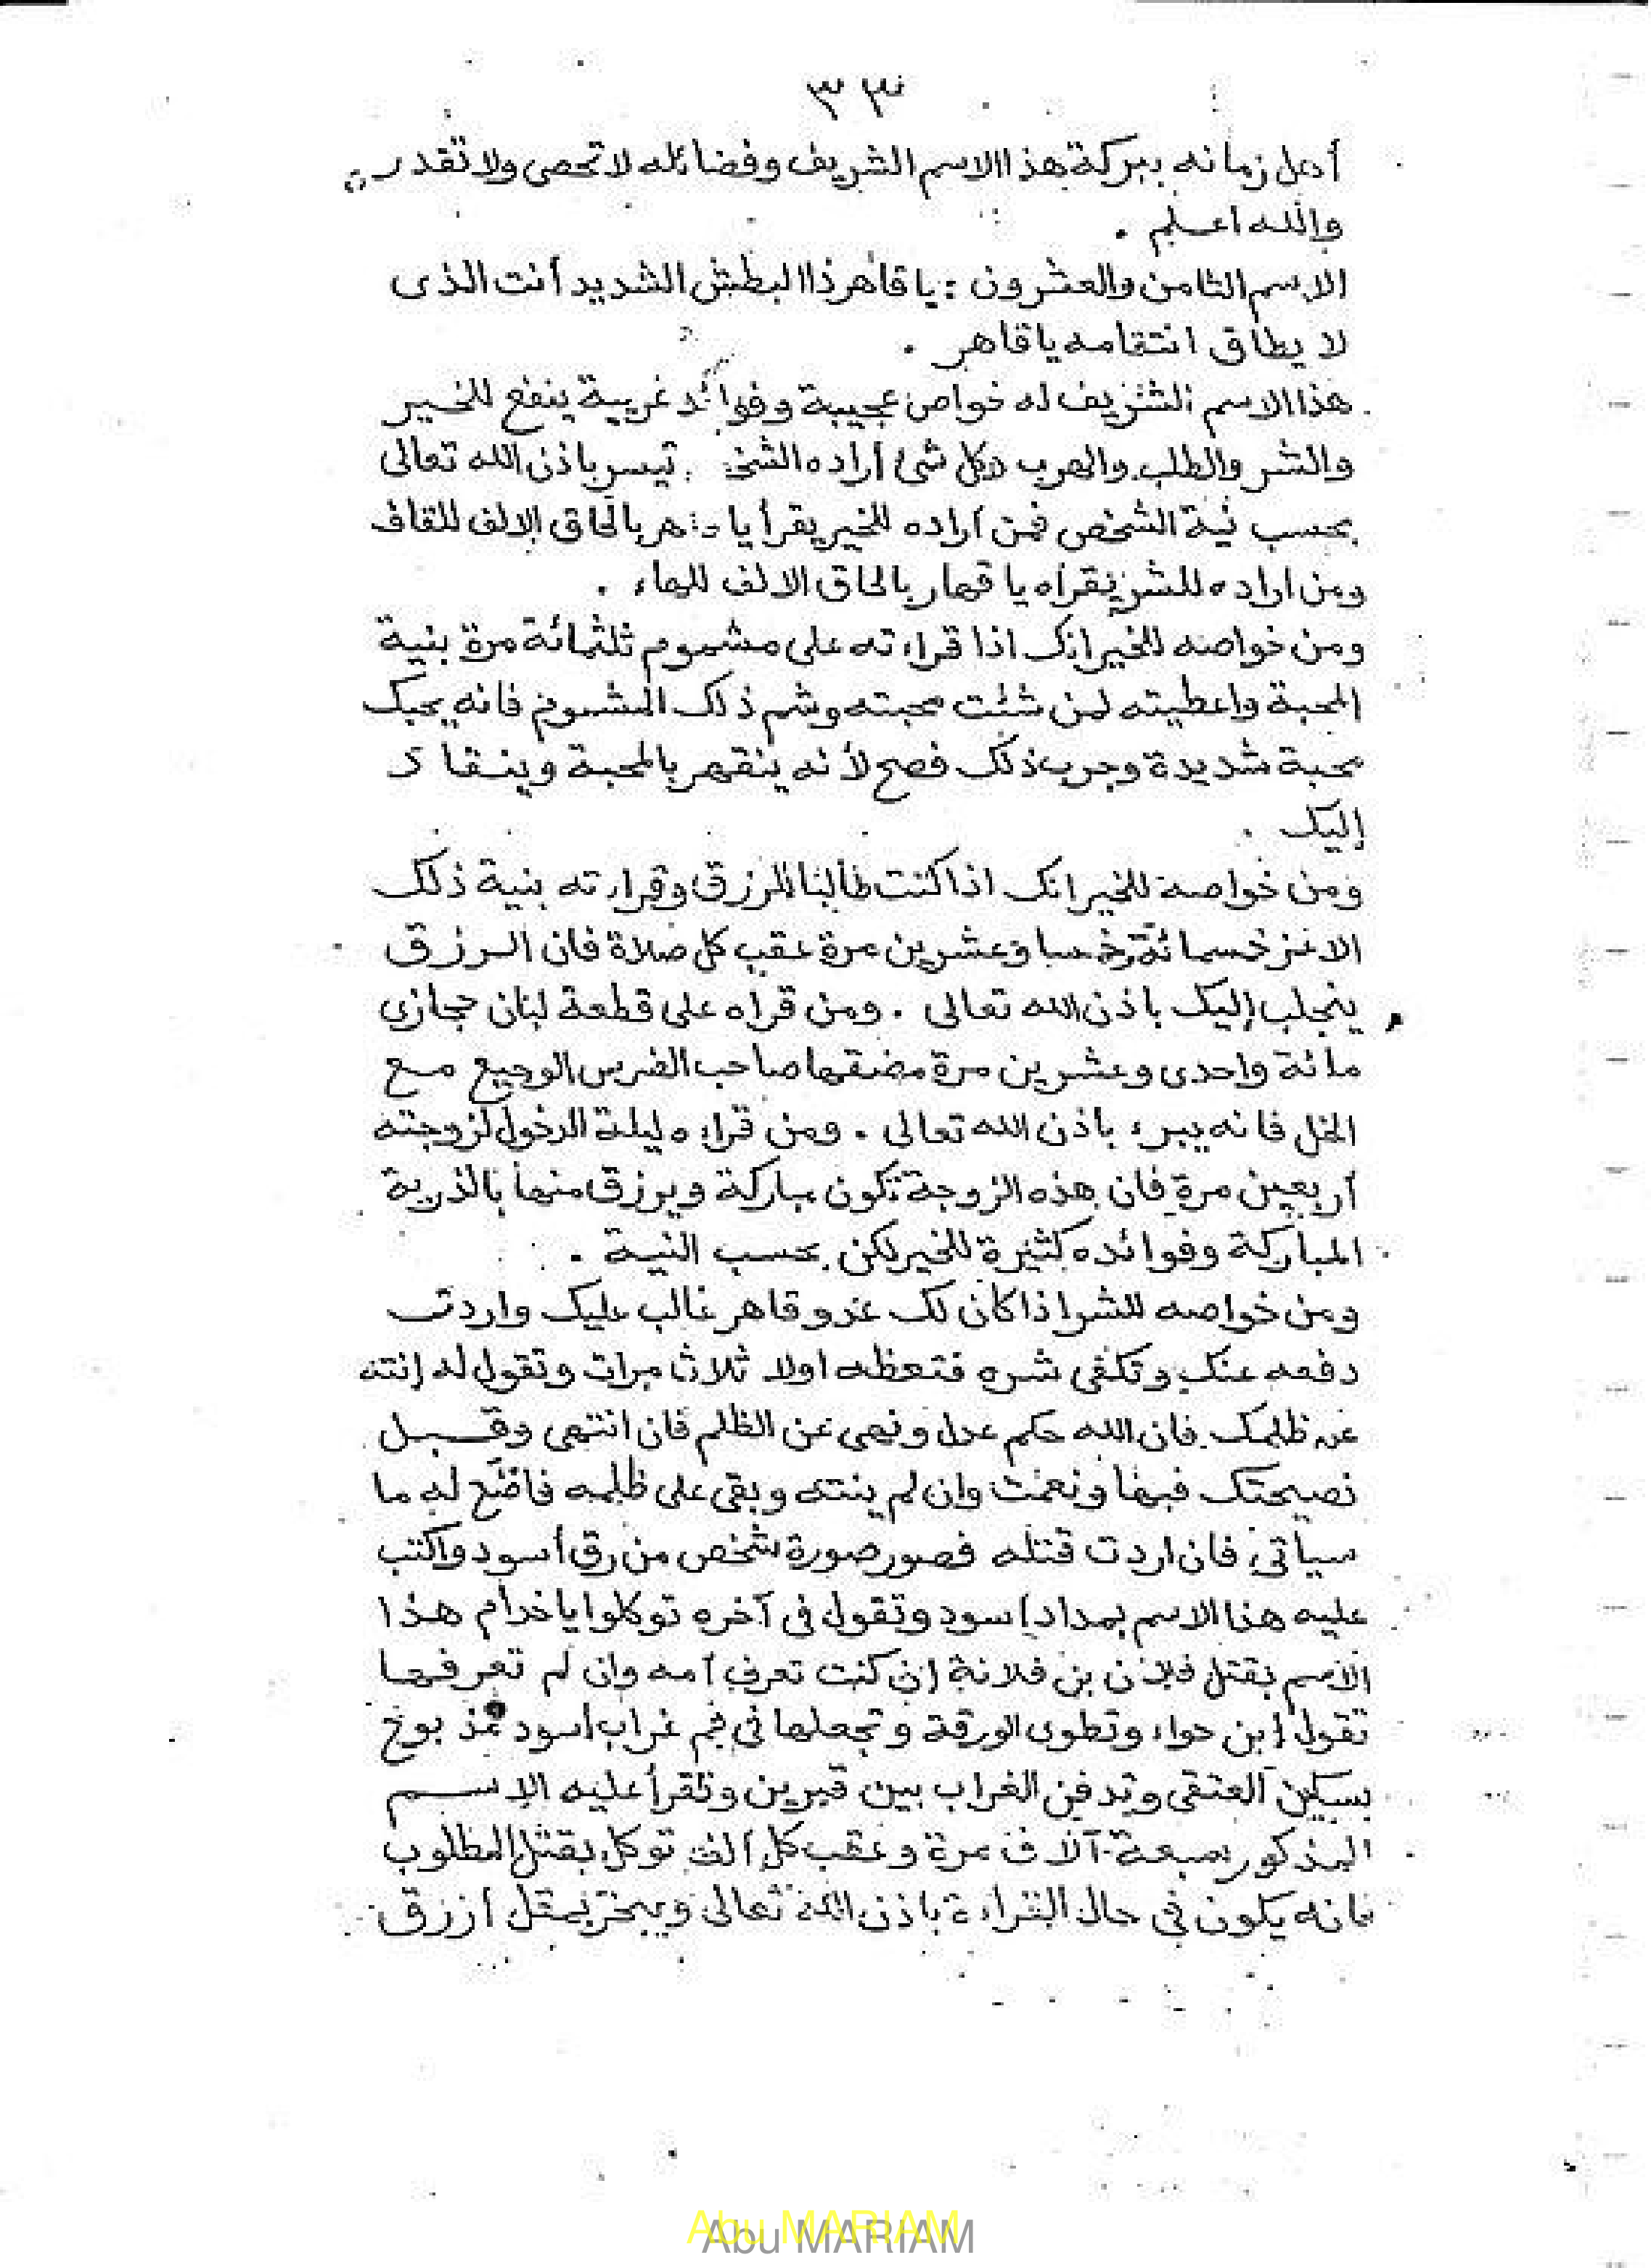 ٣٣
أهل زمانه ببركة هذا الاسم الشريف وفضائله لا تحصى ولا تقدر
والله اعلم .
الاسم الثامن والعشرون : يا قاهر ذا البطش الشديد أنت الذى
لا يطاق انتقامه يا قاهر .
هذا الاسم الشريف له خواص عجيبة وفوائد غريبة ينفع للخير
والشر والطلب والهرب وكل شئ أراده تيسر باذن الله تعالى
بحسب نية الشخص فمن اراده للخير يقرأ يا بالحاق الالف للقاف
ومن اراده للشر يقراه يا قهار بالحاق الالف للهاء .
ومن خواصه للخير انك اذا قراءته على مشموم ثلثمائة مرة بنية
المحبة واعطيته لمن شئت محبته وشم ذلك المشموم فانه يحبك
محبة شديدة وجرب ذلك فصح لأنه ينقهر بالمحبة وينقاد
إليك .
ومن خواصه للخير انك اذا كنت طالبا للرزق وقراءته بنية ذلك
خمسمائة وخمسا وعشرين مرة عقب كل صلاة فان الرزق
ينجلب إليك باذن الله تعالى . ومن قراه على قطعة لبان حجازي
مائة واحدى وعشرين مرة مضغها صاحب الضرس الوجيع مع
الخل فانه يبرء باذن الله تعالى . ومن قراءه ليلة الدخول لزوجته
أربعين مرة فان هذه الزوجة تكون مباركة ويرزق منها بالذرية
المباركة وفوائده كثيرة للخير لكن بحسب النية .
ومن خواصه للشر اذا كان لك عدو قاهر غالب عليك واردت
دفعه عنك وتكفى شره فتعظه اولا ثلاث مرات وتقول له إنته
عن ظلمك فان الله حكم عدل ونهى عن الظلم فان انتهى وقبل
نصيحتك فبها ونعمت وان لم ينته وبقى على ظلمه فاصنع له ما
سيأتي فان اردت قتله فصور صورة شخص من رق أسود واكتب
عليه هذا الاسم بمداد اسود وتقول فى آخره توكلوا يا خدام هذا
الاسم بقتل فلان بن فلانة إن كنت تعرف أمه وان لم تعرفها
تقول إبن حواء وتطوى الورقة وتجعلها فى فم غراب أسود مذبوح
بسكين العتقى وتدفن الغراب بين قبرين وتقرأ عليه الاسم
المذكور سبعة آلاف مرة وعقب كل ألف توكل بقتل المطلوب
فانه يكون فى حال القراءة باذن الله تعالى ويبخر بمقل أزرق
Abu MARIAM